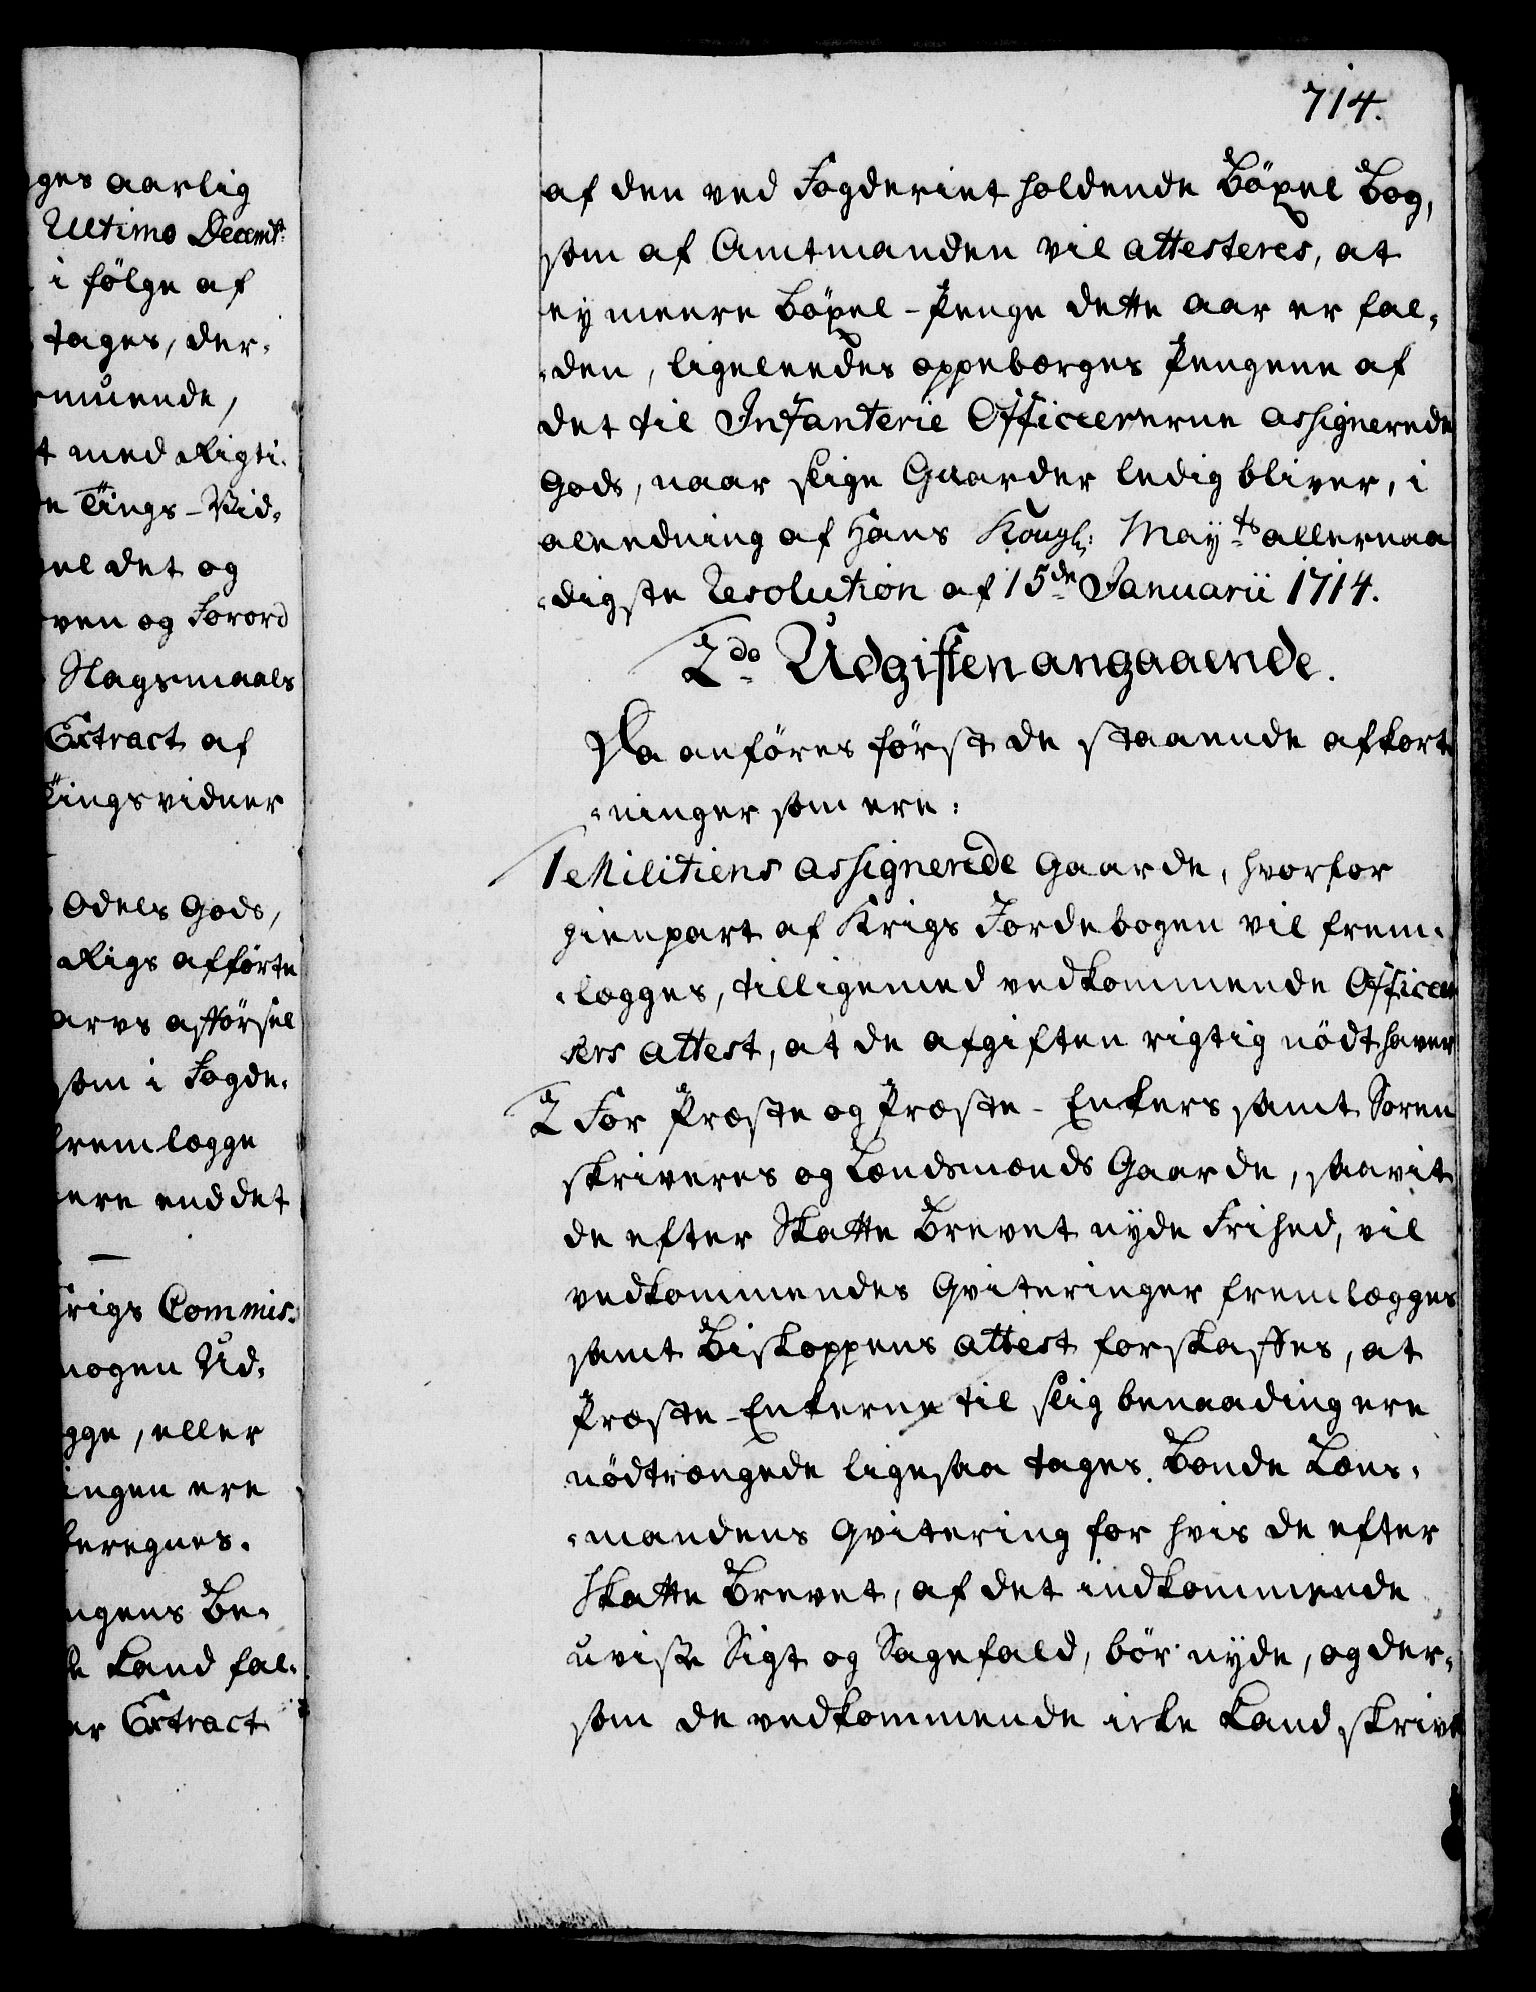 714.
ges aarlig
Ultimo Decemb:
i følge af
tages, der-
t med Rigti-
e Tings-Vid-
el det og
ven og Forord
Klagsmaals
Extract af
Tingsvidner
Odels Gods,
Rigs afførte
arvs afførsel
som i Fogde-
fremlegge
ere end det
Krigs Commis-
nogen Ud-
gge, eller
ingen ere
beregnes.
ngens Be-
Land fal-
er Extract
af den ved Fogderiet holdende Böxel Bog,
som af Amtmanden vil attesteres, at
ey meere Böxel-Penge dette Aar er fal-
den, ligeleedes oppebærges Pengene af
det til Infanterie Officeererne assignerede
Gods, naar slige Gaarder ledig bliver, i
aleedning af Hans Kongl: Mayts allernaa
digste Resolution af 15de Januarii 1714.
2do Udgiften angaaende.
Da anföres först de staaende afkort
ninger som ere:
1 Militiens assignerede Gaarde, hvorfor
gienpart af Krigs Jordebogen vil frem-
legges, tilligemed vedkommende Officee
rers attest, at de afgiften rigtig nödt haver
2 For Præste og Præste-Enkers samt Soren
skriveres og Lændsmænds Gaarde, saavit
de efter Skatte Brevet nyde Frihed, vil
vedkommendes Qviteringer fremlægges
samt Biskoppens attest forskaffes, at
Præste-Enkerne til slig benaading ere
nödtrængede ligesaa tages Bonde Læns-
mandens Qvitering for hvis de efter
Skatte Brevet, af det indkommende
uvisse Sigt og Sagefald, bör nyde, og der-
som de vedkommende icke kand skrive